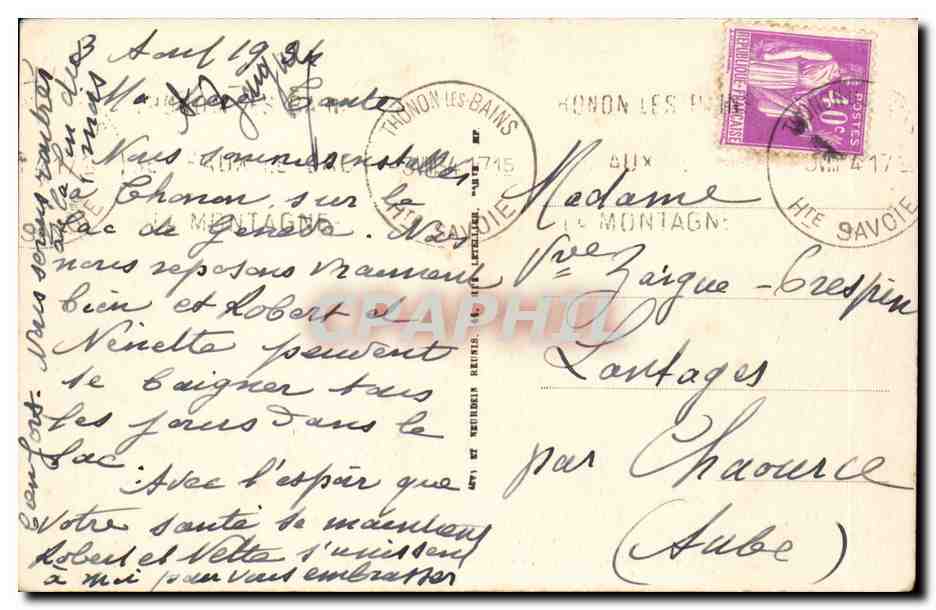 3 Août 1934
Ma chère Tante
Nous sommes installés
à Thonon, sur le
Lac de Genève. Nous
nous reposons vraiment
bien et Robert et
Ninette peuvent
se baigner tous
les jours dans le
Lac. Avec l'espoir que
votre santé se maintient
Robert et Nette s'unissent
à moi pour vous embrasser
bien fort. Nous serons rentrés
à la fin du
mois
Madame
Vve Zaigue-Crespin
Lantages
par Chaource
(Aube)
THONON LES BAINS
17 15
Hte SAVOIE
MONTAGNE
THONON LES BAINS
AUX
LA MONTAGNE
4-17
Hte SAVOIE
REPUBLIQUE FRANÇAISE
POSTES
40c
LEVY ET NEURDEIN REUNIS, 44, RUE LETELLIER, PARIS IMP
CPAPHIL